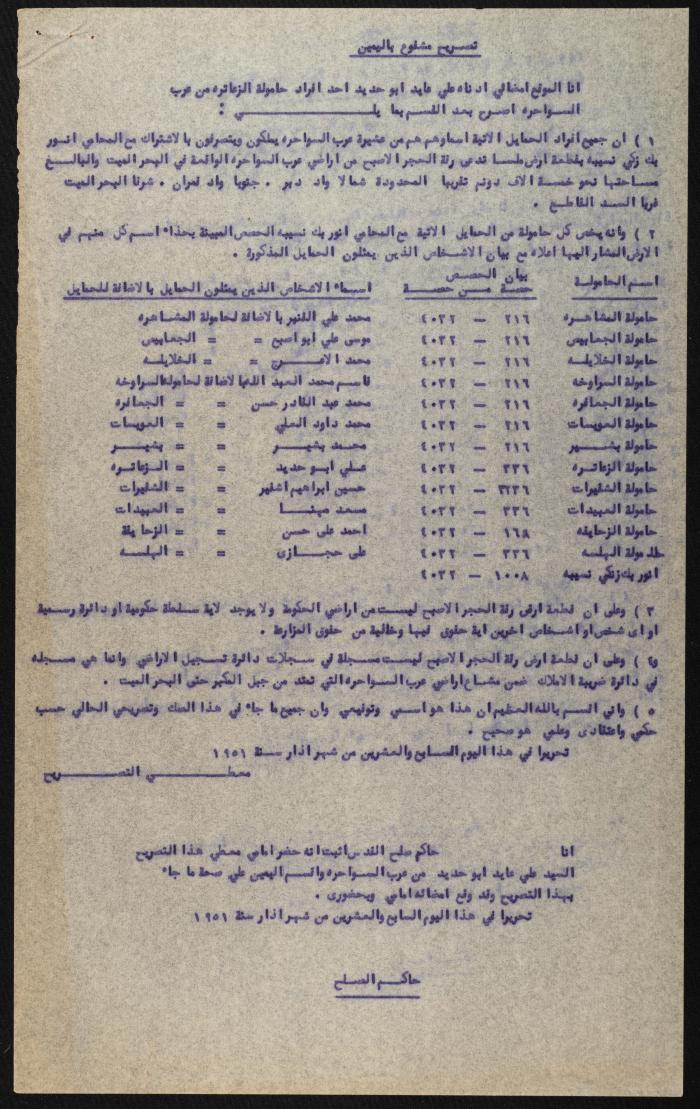 تصريح مشفوع باليمين
انا الموقع امضائي ادناه علي عايد ابو حديد احد افراد حامولة الزعاتره من عرب
السواحره اصرح بعد القسم بما يلـــــــي :
١ ) ان جميع افراد الحمايل الاتية اسماؤهم هم من عشيرة عرب السواحره يملكون ويتصرفون بالاشتراك مع المحامي انور
بك زكي نسيبه بقطعة ارض تدعى رقة الحجر الاصبح من اراضي عرب السواحره الواقعة في البحر الميت والبالــغ
مساحتها نحو خمسة الاف دونم تقريبا المحدودة شمالا واد دبر . جنوبا واد تمران . شرقا البحر الميت
غربا السد القاطع .
٢ ) وانه يخص كل حامولة من الحمايل الاتية مع المحامي انور بك نسيبه الحصص المبينة بحذاء اسم كل منهم في
الارض المشار اليها اعلاه مع بيان الاشخاص الذين يمثلون الحمايل المذكورة .
اسم الحامولة بيان الحصص اسماء الاشخاص الذين يمثلون الحمايل بالاضافة للحمايل
حصة مــن حصة
حامولة المشاعره ٢١٦ — ٤٠٣٢ محمد علي القنبر بالاضافة لحامولة المشاعره
حامولة الجعابيص ٢١٦ — ٤٠٣٢ موسى علي ابو اصبح = = الجعابيص
حامولة الخلايله ٢١٦ — ٤٠٣٢ محمد الاعــرج = = الخلايله
حامولة السراوخه ٢١٦ — ٤٠٣٢ قاسم محمد العبد بالاضافة لحامولة السراوخه
حامولة الجعافره ٢١٦ — ٤٠٣٢ محمد عبد القادر حسن = = الجعافره
حامولة العويسات ٢١٦ — ٤٠٣٢ محمد داود العلي = = العويسات
حامولة بشـــير ٢١٦ — ٤٠٣٢ محمـد بشيــر = = بشيــر
حامولة الزعاتره ٣٣٦ — ٤٠٣٢ عـلي ابـو حديد = = الزعاتره
حامولة الشقيرات ٣٣٦ — ٤٠٣٢ حسين ابراهيم اشقير = = الشقيرات
حامولة العبيدات ٣٣٦ — ٤٠٣٢ مسعد مهنــا = = العبيدات
حامولة الزحايقه ١٦٨ — ٤٠٣٢ احمد علي حسن = = الزحايقة
حامولة الهلسه ٣٣٦ — ٤٠٣٢ علي حجــازي = = الهلسه
انور بك زكي نسيبه ١٠٠٨ — ٤٠٣٢
٣ ) وعلى ان قطعة ارض رقة الحجر الاصبح ليست من اراضي الحكومة ولا يوجد لاية سلطة حكومية او دائرة رسمية
او اى شخص او اشخاص اخرين اية حقوق فيها وخالية من حقوق المزارعة .
٤ ) وعلى ان قطعة ارض رقة الحجر الاصبح ليست مسجلة في سجلات دائرة تسجيل الاراضي وانما هي مسجله
في دائرة ضريبة الاملاك ضمن مشاع اراضي عرب السواحره التي تمتد من جبل المكبر حتى البحر الميت .
٥ ) واني اقسم بالله العظيم ان هذا هو اسمي وتوقيعي وان جميع ما جاء في هذا الصك وتصريحي الحالي حسب
حكمي واعتقادى وعلمي هو صحيح .
تحريرا في هذا اليوم السابع والعشرين من شهر اذار سنة ١٩٥١
معطـــــــــي التصــــــريح
انا حاكم صلح القدس اثبت انه حضر امامي معطي هذا التصريح
السيد علي عايد ابو حديد من عرب السواحره واقسم اليمين على صحة ما جاء
بهذا التصريح وقد وقع امضائه امامي وبحضورى .
تحريرا في هذا اليوم السابع والعشرين من شهر اذار سنة ١٩٥١
حاكــم الصلــح